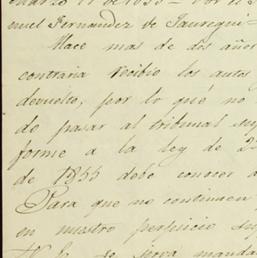 nuel Fernandez de Jauregui
Hace mas de dos años
contraria recibio los autos
devuelto, por lo qué no
de pasar al tribunal sup
forme a la ley de 2
de 1855 debe conocer
Para que no continuen
en nuestro perjuicio su
se sirva manda